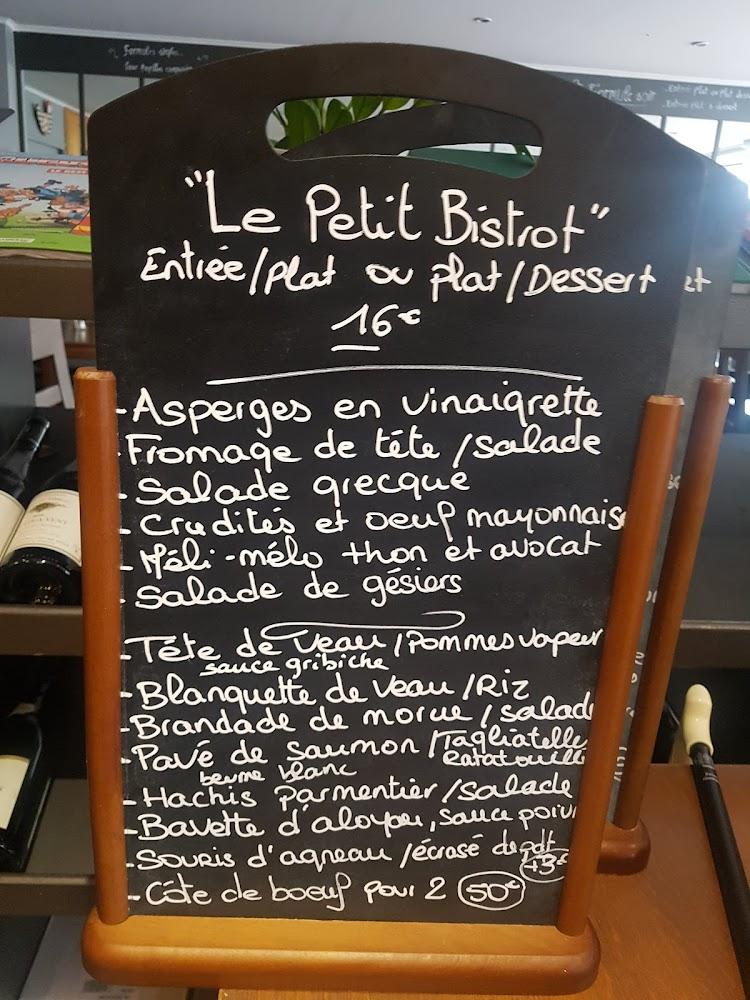 "Le Petit Bistrot"
Entrée/plat ou plat/Dessert
16€
- Asperges en vinaigrette
- Fromage de tête /salade
- Salade grecque
- Crudités et oeuf mayonnaise
- Méli-mélo thon et avocat
- Salade de gésiers
- Tête de veau /Pommes vapeur
sauce gribiche
- Blanquette de veau /Riz
- Brandade de morue / salade
- Pavé de saumon /Tagliatelle
beurre blanc ratatouille
- Hachis parmentier /salade
- Bavette d'aloyau, sauce poivr
- Souris d'agneau /écrasé de pdt
+3€
- Côte de boeuf pour 2 50€
et